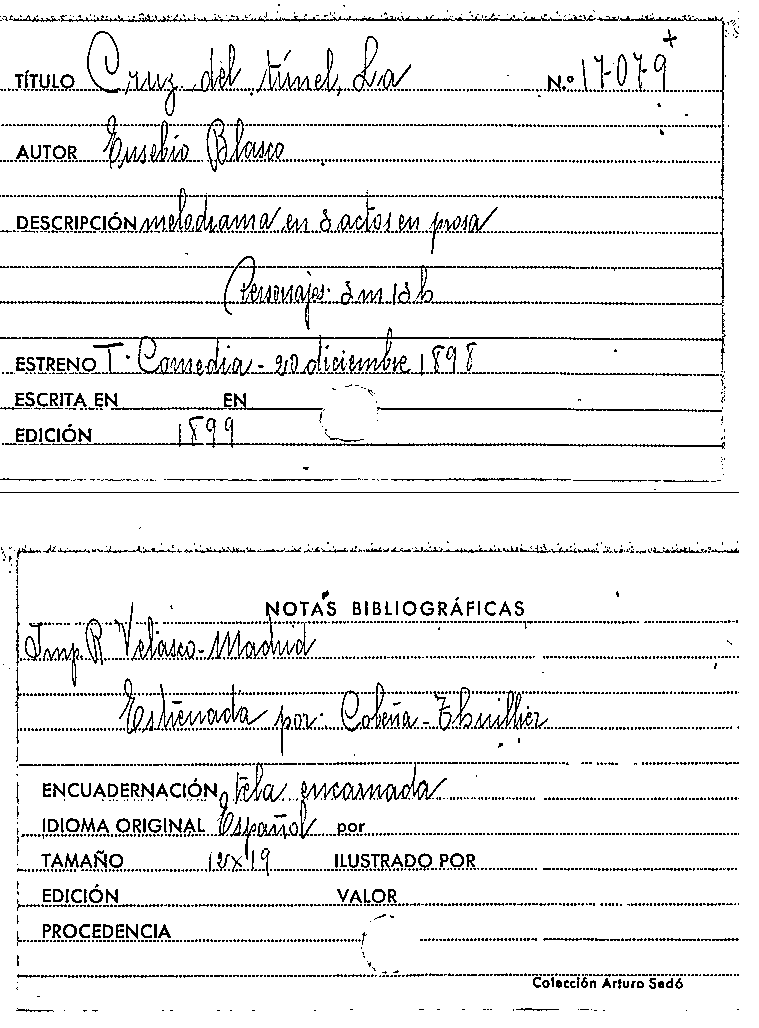 TÍTULO Cruz del túnel, La N.º 17079 +
AUTOR Eusebio Blasco
DESCRIPCIÓN melodrama en 3 actos en prosa
Personajes: 3 m 13 h
ESTRENO T. Comedia - 20 diciembre 1898
ESCRITA EN EN
EDICIÓN 1899
NOTAS BIBLIOGRÁFICAS
Imp. R. Velasco - Madrid
Estrenada por: Cobeña - Thuillier
ENCUADERNACIÓN tela encarnada
IDIOMA ORIGINAL Español por
TAMAÑO 12x19 ILUSTRADO POR
EDICIÓN VALOR
PROCEDENCIA
Colección Arturo Sedó